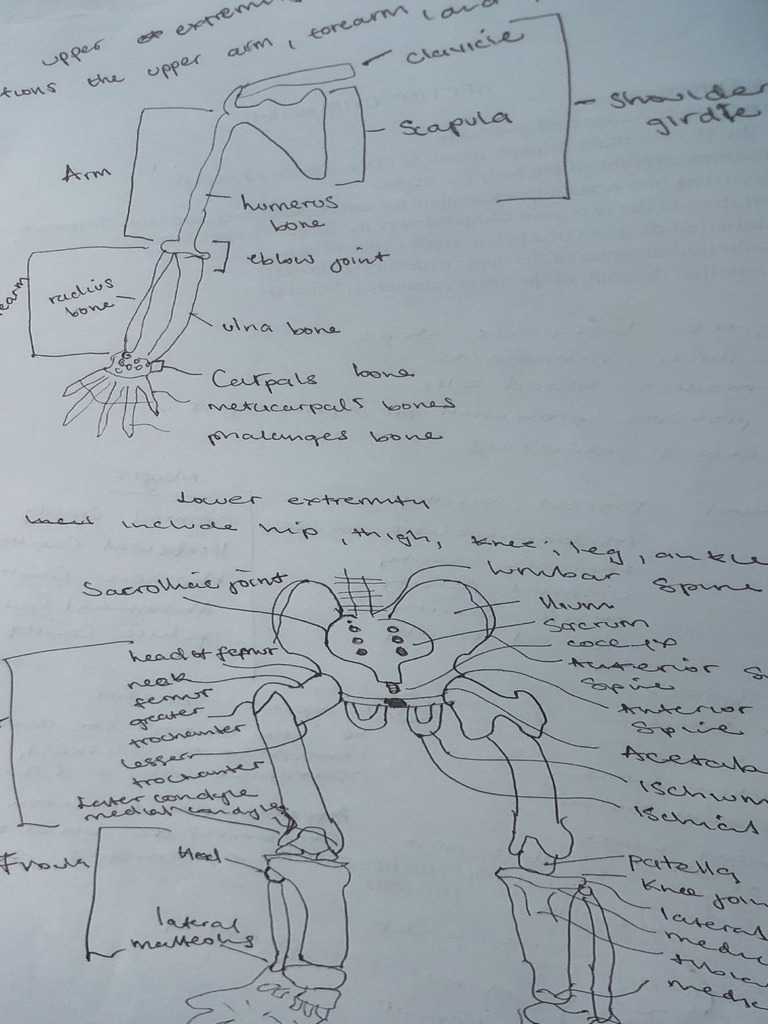 upper extrem
tions the upper arm, forearm, and
clavicle
Scapula
shoulder
girdle
Arm
humerus
bone
eblow joint
radius
bone
earm
ulna bone
Carpals bone
metacarpals bones
phalanges bone
Lower extremity
include hip, thigh, knee, leg, ankle
Lumbar Spine
Sacroiliac joint
Ilium
Sacrum
Anterior
Spine
head of femur
neck
femur
greater
trochanter
Lesser
trochanter
Later condyle
medial condyle
Anterior
Spine
Acetab
Ischium
Ischial
head
patella
knee join
lateral
medi
tibia
medi
lateral